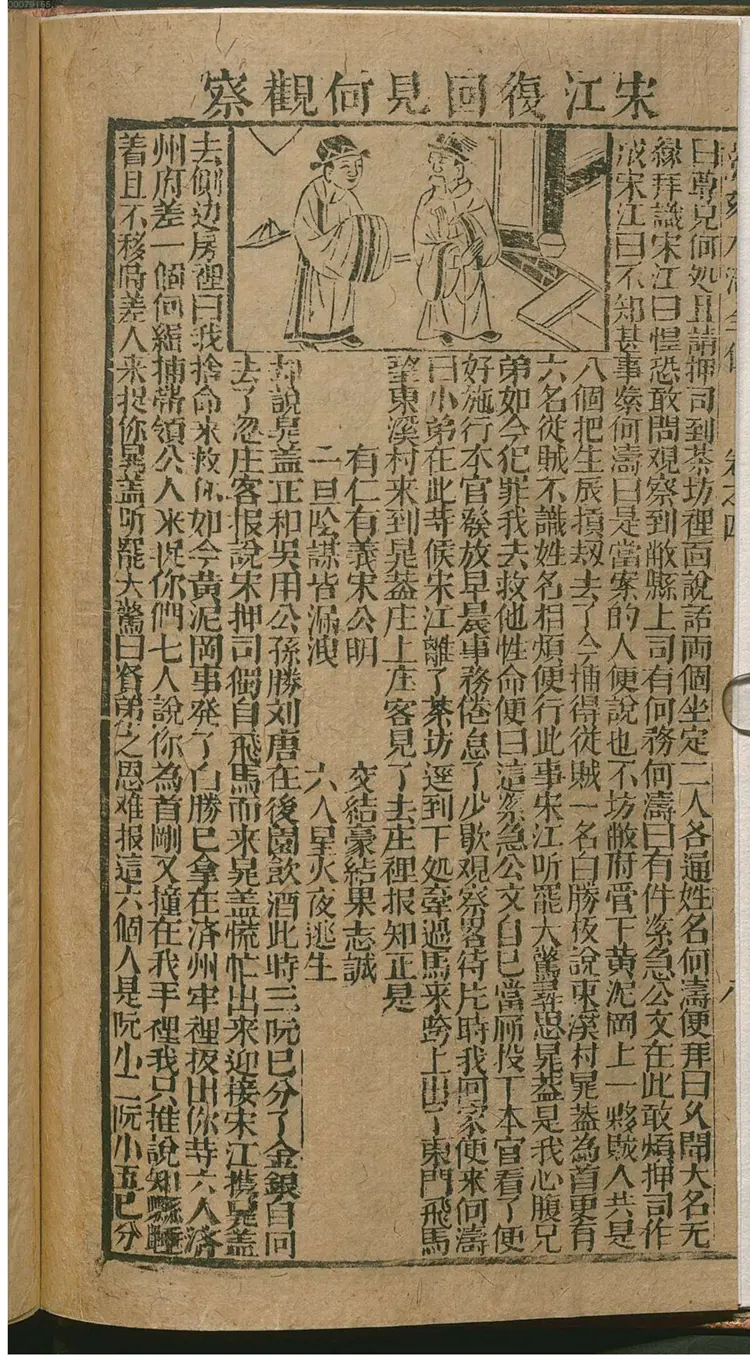 00079155
宋江復回見何觀察
卷之四
八
曰尊兄何処且請押司到茶坊裡面說話両個坐定二人各通姓名何濤便拜曰乆聞大名无
緣拜識宋江曰惶恐敢問观察到敝縣上司有何務何濤曰有件紧急公文在此敢煩押司作
成宋江曰不知甚事紧何濤曰是當案的人便說也不坊敝府管下黄泥岡上一夥賊人共是
八個把生辰損刼去了今捕得從賊一名白勝板說東溪村晁盖為首更有
六名從賊不識姓名相煩便行此事宋江听罷大驚尋思晁盖是我心腹兄
弟如今犯罪我去救他性命便曰這紧急公文自巳當厛投下本官看了便
好施行本官發放早晨事務倦怠了少歇观察畧待片時我回家便来何濤
曰小弟在此䓁候宋江離了茶坊逕到下処牽過馬来跨上出了東門飛馬
望東溪村来到晁盖庄上庄客見了去庄裡报知正是
有仁有義宋公明
交結豪結果志誠
一旦陰謀皆漏洩
六人星火夜逃生
却說晁盖正和吳用公孫勝刘唐在後園飲酒此時三阮巳分了金銀自回
去了忽庄客报說宋押司獨自飛馬而来晁盖慌忙出来迎接宋江携晁盖
去側边房裡曰我捨命来救你如今黄泥岡事発了白勝巳拿在済州牢裡扳出你䓁六人済
州府差一個何緝捕帶領公人来捉你們七人說你為首剛又撞在我手裡我只推說知縣睡
着且不移時差人来捉你晁盖听罷大驚曰賢弟之恩难报這六個人是阮小二阮小五巳分